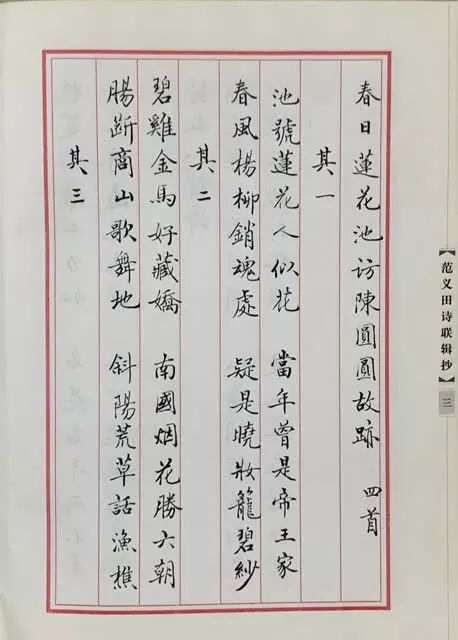 春日蓮花池訪陳圓圓故跡 四首
其一
池號蓮花人似花 當年曾是帝王家
春風楊柳銷魂處 疑是曉妝籠碧紗
其二
碧雞金馬好藏嬌 南國烟花勝六朝
腸斷商山歌舞地 斜陽荒草話漁樵
其三
【范义田诗联辑抄】
三